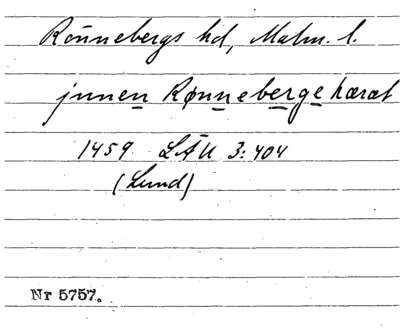 Rönnebergs hd, Malm. l.
jnnen Rønnebergehæræt
1459 LÄU 3:404
(Lund)
Nr 5757.